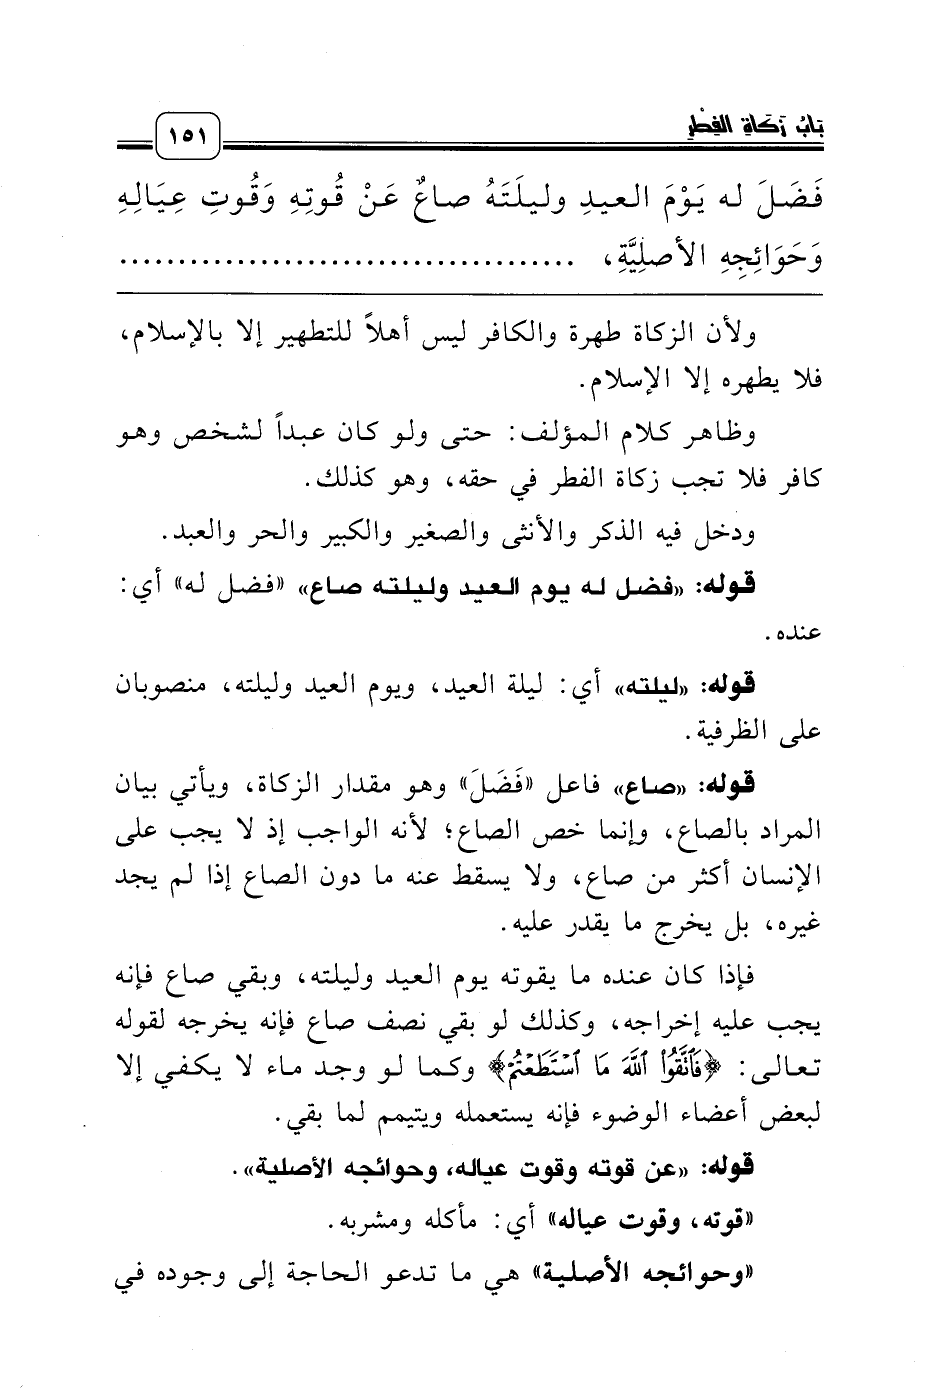 بَابُ زَكَاةِ الفِطْرِ
١٥١
فَضَلَ له يَوْمَ العيدِ وليلَتَهُ صاعٌ عَنْ قُوتِهِ وَقُوتِ عِيَالِهِ
وَحَوَائِجِهِ الأصلِيَّةِ، ......................................
ولأن الزكاة طهرة والكافر ليس أهلاً للتطهير إلا بالإسلام،
فلا يطهره إلا الإسلام.
وظاهر كلام المؤلف: حتى ولو كان عبداً لشخص وهو
كافر فلا تجب زكاة الفطر في حقه، وهو كذلك.
ودخل فيه الذكر والأنثى والصغير والكبير والحر والعبد.
قوله: «فضل له يوم العيد وليلته صاع» «فضل له» أي:
عنده.
قوله: «ليلته» أي: ليلة العيد، ويوم العيد وليلته، منصوبان
على الظرفية.
قوله: «صاع» فاعل «فَضَلَ» وهو مقدار الزكاة، ويأتي بيان
المراد بالصاع، وإنما خص الصاع؛ لأنه الواجب إذ لا يجب على
الإنسان أكثر من صاع، ولا يسقط عنه ما دون الصاع إذا لم يجد
غيره، بل يخرج ما يقدر عليه.
فإذا كان عنده ما يقوته يوم العيد وليلته، وبقي صاع فإنه
يجب عليه إخراجه، وكذلك لو بقي نصف صاع فإنه يخرجه لقوله
تعالى: ﴿فَٱتَّقُوا۟ ٱللَّهَ مَا ٱسْتَطَعْتُمْ﴾ وكما لو وجد ماء لا يكفي إلا
لبعض أعضاء الوضوء فإنه يستعمله ويتيمم لما بقي.
قوله: «عن قوته وقوت عياله، وحوائجه الأصلية».
«قوته، وقوت عياله» أي: مأكله ومشربه.
«وحوائجه الأصلية» هي ما تدعو الحاجة إلى وجوده في